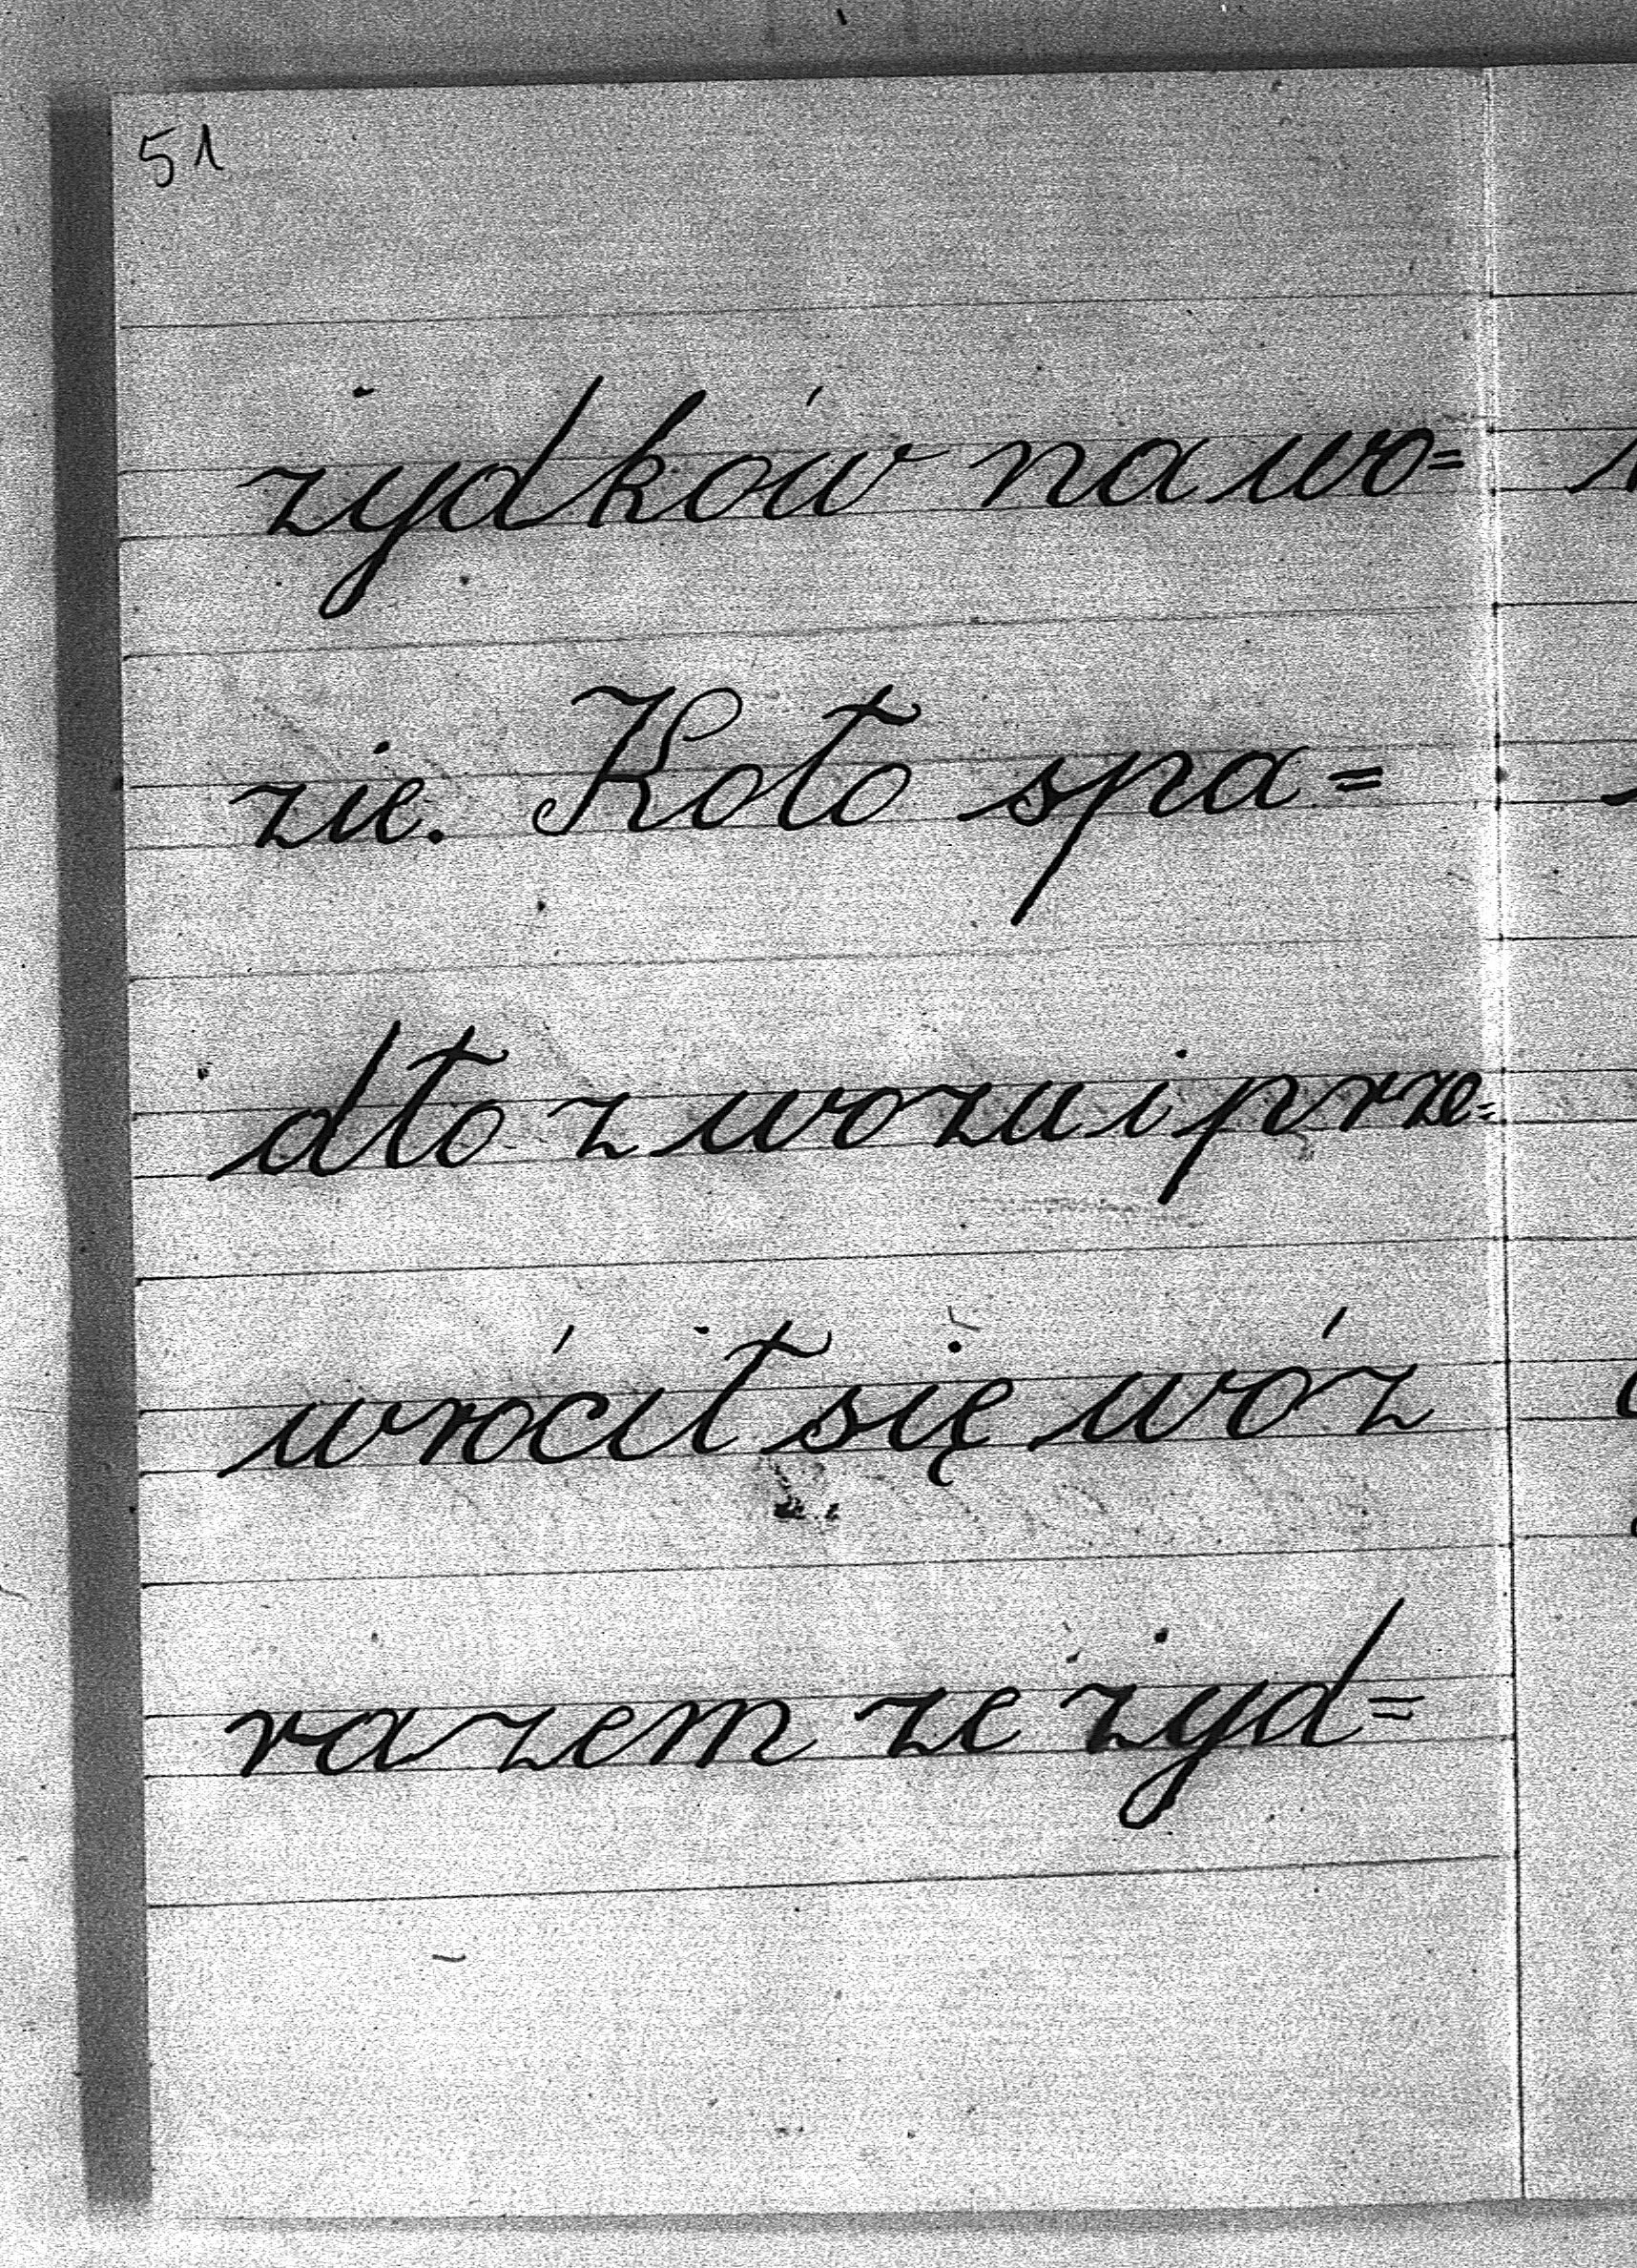 51
żydków na wo=
zie. Koło spa=
dło z wozu i prze=
wrócił się wóz
razem ze żyd=